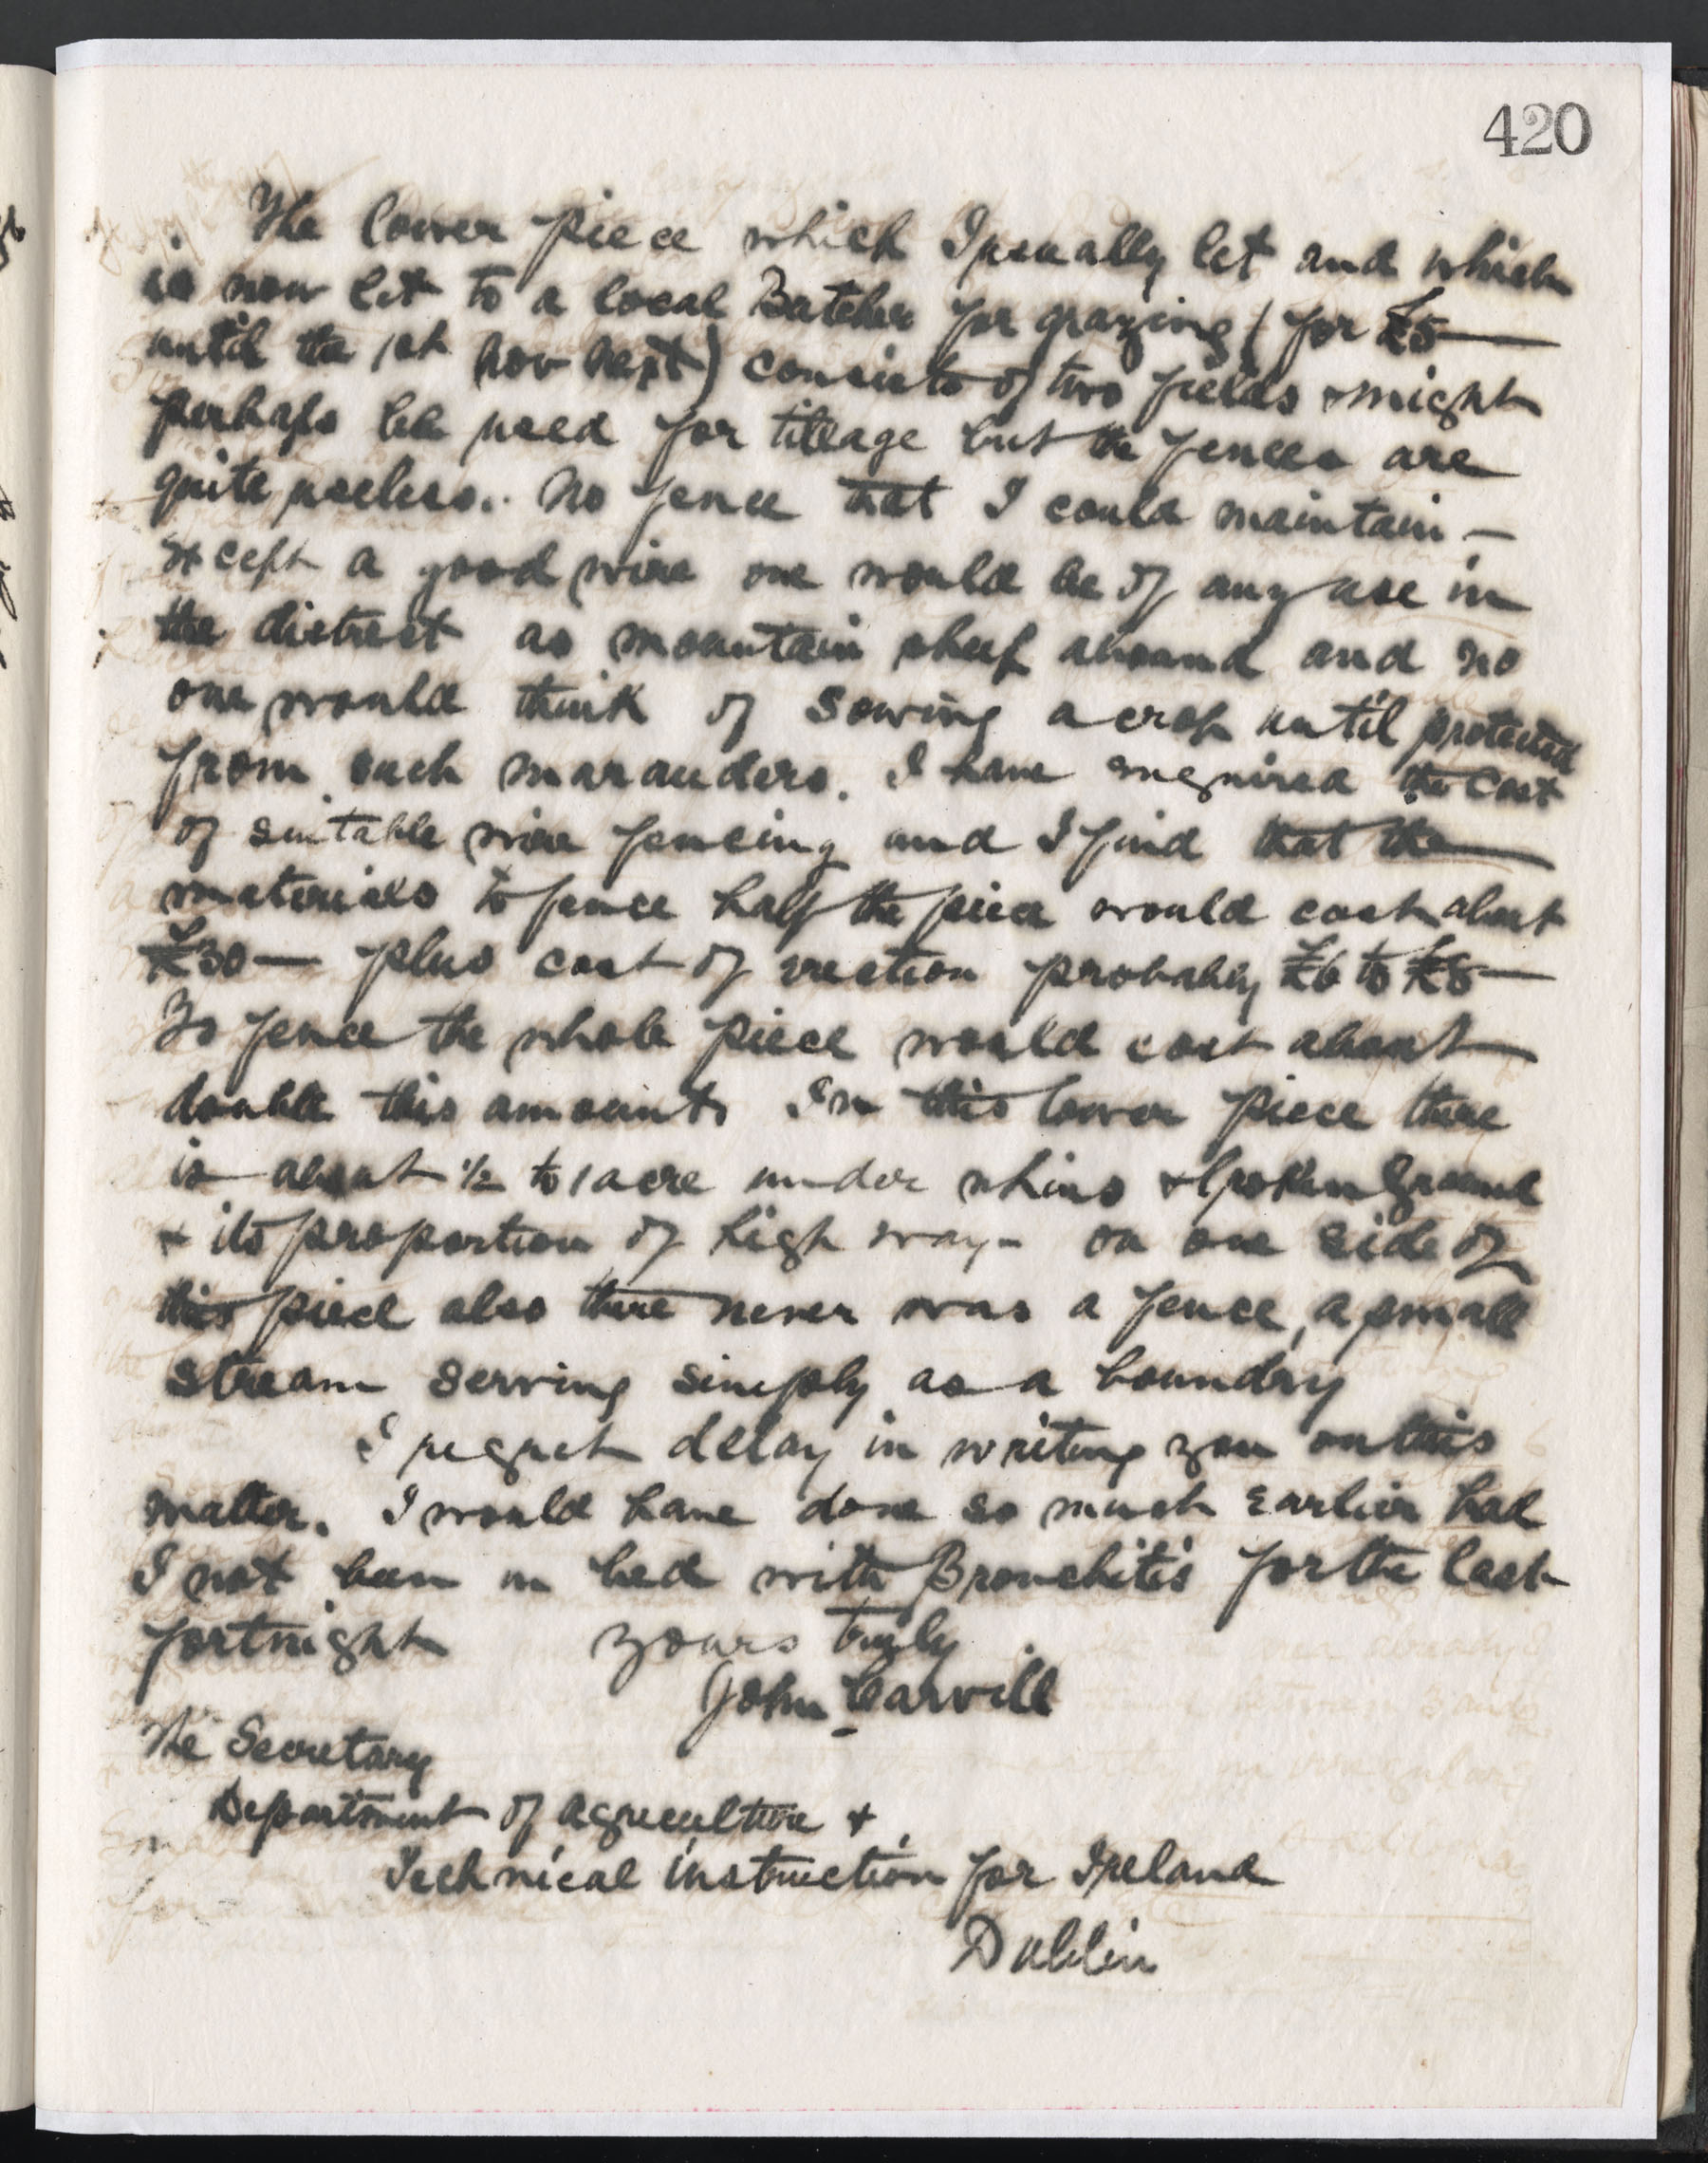 420
The lower piece which I usually let and which
is now let to a local Butcher for grazing (for £5—
until the 1st Nov next) consists of two fields & might
perhaps be used for tillage but the fences are
quite useless. No fence that I could maintain —
except a good wire one would be of any use in
the district as mountain sheep abound and no
one would think of sowing a crop until protected
from such marauders. I have enquired the cost
of suitable wire fencing and I find that the
materials to fence half the piece would cost about
£30 — plus cost of erection probably £6 to £8 —
To fence the whole piece would cost about
double this amount. In this lower piece there
is about ½ to 1 acre under whins & broken ground
& its proportion of high way - on one side of
this piece also there never was a fence, a small
stream serving simply as a boundry
I regret delay in writing you on this
matter. I would have done so much earlier had
I not been in bed with Bronchitis for the last
fortnight yours truly
John Carvill
The Secretary
Department of agriculture &
Technical instruction for Ireland
Dublin